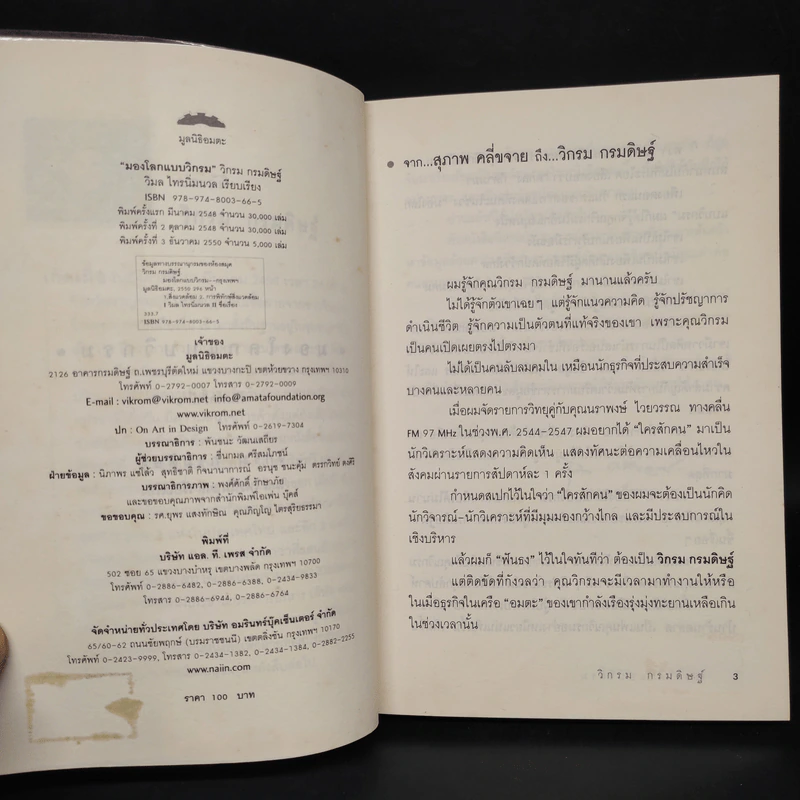 มูลนิธิอมตะ
"มองโลกแบบวิกรม" วิกรม กรมดิษฐ์
วิมล ไทรนิ่มนวล เรียบเรียง
ISBN 978-974-8003-66-5
พิมพ์ครั้งแรก มีนาคม 2548 จำนวน 30,000 เล่ม
พิมพ์ครั้งที่ 2 ตุลาคม 2548 จำนวน 30,000 เล่ม
พิมพ์ครั้งที่ 3 ธันวาคม 2550 จำนวน 5,000 เล่ม
ข้อมูลทางบรรณานุกรมของห้องสมุด
วิกรม กรมดิษฐ์
มองโลกแบบวิกรม.--กรุงเทพฯ
มูลนิธิอมตะ, 2550 396 หน้า
1.สิ่งแวดล้อม 2. การพิทักษ์สิ่งแวดล้อม
I วิมล ไทรนิ่มนวล II ชื่อเรื่อง
333.7
ISBN 978-974-8003-66-5
เจ้าของ
มูลนิธิอมตะ
2126 อาคารกรมดิษฐ์ ถ.เพชรบุรีตัดใหม่ แขวงบางกะปิ เขตห้วยขวาง กรุงเทพฯ 10310
โทรศัพท์ 0-2792-0007 โทรสาร 0-2792-0009
E-mail : vikrom@vikrom.net info@amatafoundation.org
www.vikrom.net
ปก : On Art in Design โทรศัพท์ 0-2619-7304
บรรณาธิการ : พันชนะ วัฒนเสถียร
ผู้ช่วยบรรณาธิการ : ชื่นกมล ศรีสมโภชน์
ฝ่ายข้อมูล : นิภาพร แซ่โล้ว สุทธิชาติ กิจนานาการณ์ อรนุช ชนะคุ้ม ดรรกวิทย์ คงศิริ
บรรณาธิการภาพ : พงศ์ศักดิ์ รักษาภัย
และขอขอบคุณภาพจากสำนักพิมพ์โอเพ่น บุ๊คส์
ขอขอบคุณ : รศ.ยุพร แสงทักษิณ คุณภิญโญ ไตรสุริยธรรมา
พิมพ์ที่
บริษัท แอล. ที. เพรส จำกัด
502 ซอย 65 แขวงบางบำหรุ เขตบางพลัด กรุงเทพฯ 10700
โทรศัพท์ 0-2886-6482, 0-2886-6388, 0-2434-9833
โทรสาร 0-2886-6944, 0-2886-6764
จัดจำหน่ายทั่วประเทศโดย บริษัท อมรินทร์บุ๊คเซ็นเตอร์ จำกัด
65/60-62 ถนนชัยพฤกษ์ (บรมราชชนนี) เขตตลิ่งชัน กรุงเทพฯ 10170
โทรศัพท์ 0-2423-9999, โทรสาร 0-2434-1382, 0-2434-1384, 0-2882-2255
www.naiin.com
ราคา 100 บาท
• จาก...สุภาพ คลี่ขจาย ถึง...วิกรม กรมดิษฐ์
ผมรู้จักคุณวิกรม กรมดิษฐ์ มานานแล้วครับ
ไม่ได้รู้จักตัวเขาเฉยๆ แต่รู้จักแนวความคิด รู้จักปรัชญาการ
ดำเนินชีวิต รู้จักความเป็นตัวตนที่แท้จริงของเขา เพราะคุณวิกรม
เป็นคนเปิดเผยตรงไปตรงมา
ไม่ได้เป็นคนลับลมคมใน เหมือนนักธุรกิจที่ประสบความสำเร็จ
บางคนและหลายคน
เมื่อผมจัดรายการวิทยุคู่กับคุณนราพงษ์ ไวยวรรณ ทางคลื่น
FM 97 MHz ในช่วงพ.ศ. 2544-2547 ผมอยากได้ "ใครสักคน" มาเป็น
นักวิเคราะห์แสดงความคิดเห็น แสดงทัศนะต่อความเคลื่อนไหวใน
สังคมผ่านรายการสัปดาห์ละ 1 ครั้ง
กำหนดสเปกไว้ในใจว่า "ใครสักคน" ของผมจะต้องเป็นนักคิด
นักวิจารณ์-นักวิเคราะห์ที่มีมุมมองกว้างไกล และมีประสบการณ์ใน
เชิงบริหาร
แล้วผมก็ "ฟันธง" ไว้ในใจทันทีว่า ต้องเป็น วิกรม กรมดิษฐ์
แต่ติดขัดที่กังวลว่า คุณวิกรมจะมีเวลามาทำงานให้หรือ
ในเมื่อธุรกิจในเครือ "อมตะ" ของเขากำลังเรืองรุ่งมุ่งทะยานเหลือเกิน
ในช่วงเวลานั้น
วิกรม กรมดิษฐ์ 3